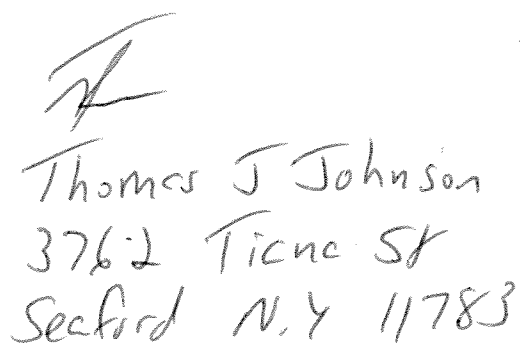 Thomas J Johnson
3762 Tiana St
Seaford N.Y 11783